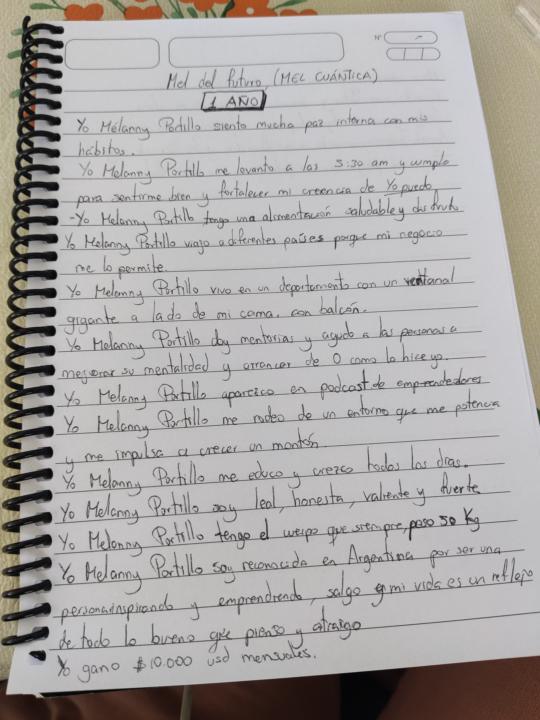 Nº
Mel del futuro, (MEL CUÁNTICA)
1 AÑO
Yo Melanny Portillo siento mucha paz interna con mis
hábitos.
Yo Melanny Portillo me levanto a las 5:30 am y cumplo
para sentirme bien y fortalecer mi creencia de Yo puedo
-Yo Melanny Portillo tengo una alimentación saludable y disfruto
Yo Melanny Portillo viajo a diferentes países porque mi negocio
me lo permite.
Yo Melanny Portillo vivo en un departamento con un ventanal
gigante a lado de mi cama, con balcón.
Yo Melanny Portillo doy mentorias y ayudo a las personas a
mejorar su mentalidad y arrancar de 0 como lo hice yo.
Yo Melanny Portillo aparezco en podcast de emprendedores
Yo Melanny Portillo me rodeo de un entorno que me potencia
y me impulsa a crecer un montón
Yo Melanny Portillo me educo y crezco todos los días.
Yo Melanny Portillo soy leal, honesta, valiente y fuerte
Yo Melanny Portillo tengo el cuerpo que siempre, peso 50 Kg
Yo Melanny Portillo soy reconocida en Argentina por ser una
persona inspirando y emprendiendo, salgo mi vida es un reflejo
de todo lo bueno que pienso y atraigo
Yo gano $10.000 usd mensuales.